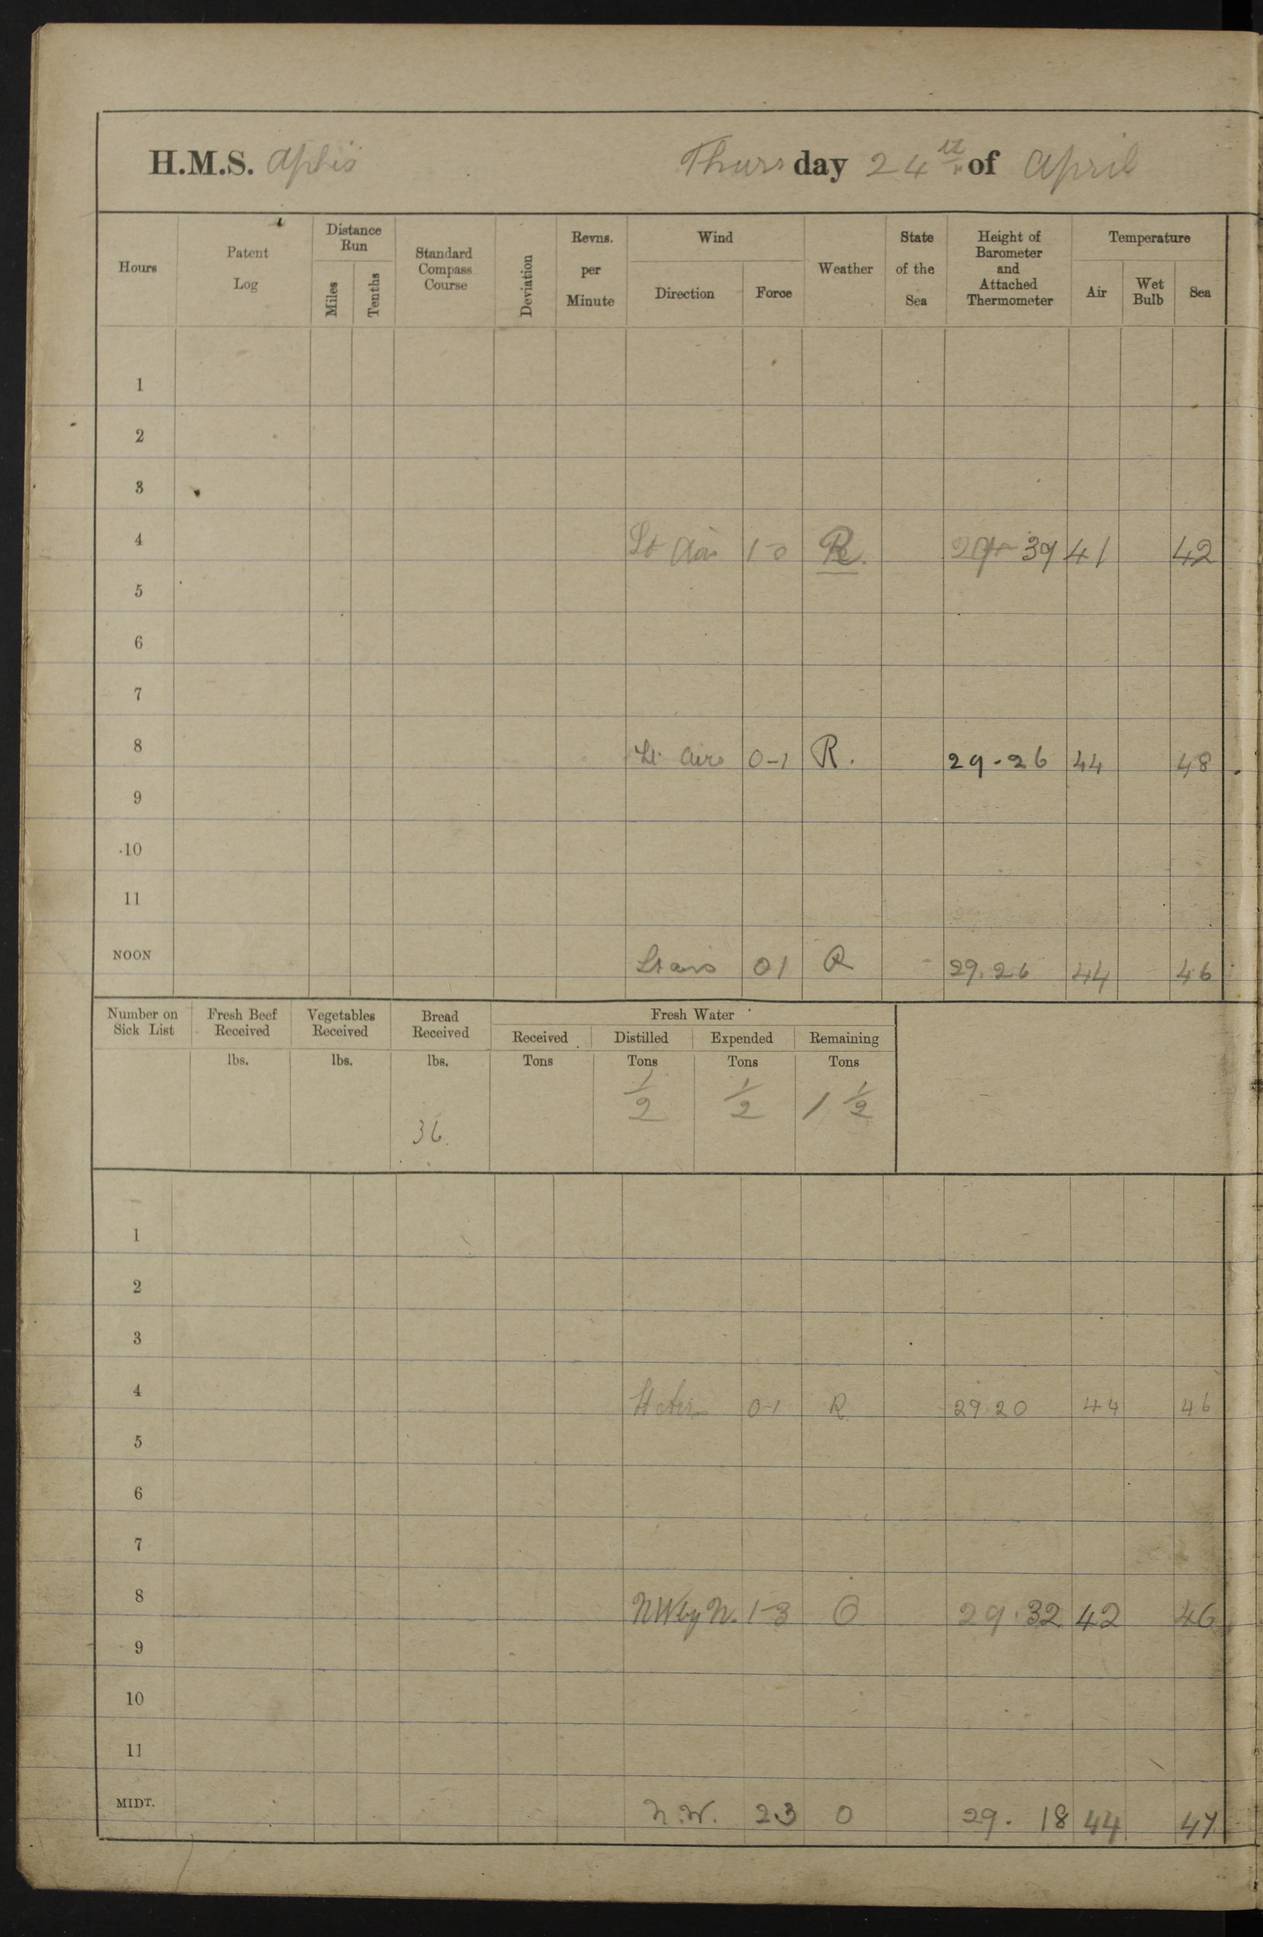 H.M.S. Aphis Thursday 24th of April
Hours Patent Log Distance Run Miles Tenths Standard Compass Course Deviation Revns. per Minute Wind Direction Force Weather State of the Sea Height of Barometer and Attached Thermometer Temperature Air Wet Bulb Sea
1
2
3
4 Lt Airs 1-0 R. 29 39 41 42
5
6
7
8 Lt Airs 0-1 R. 29-26 44 48
9
10
11
NOON Lt airs 01 R 29.26 44 46
Number on Sick List Fresh Beef Received Vegetables Received Bread Received Fresh Water
Received Distilled Expended Remaining
lbs. lbs. lbs. Tons Tons Tons Tons
36. 1/2 1/2 1 1/2
1
2
3
4 Lt Airs 0-1 R 29.20 44 46
5
6
7
8 NW by N. 1-3 O 29.32 42 46
9
10
11
MIDT. N.W. 2.3 O 29.18 44 47